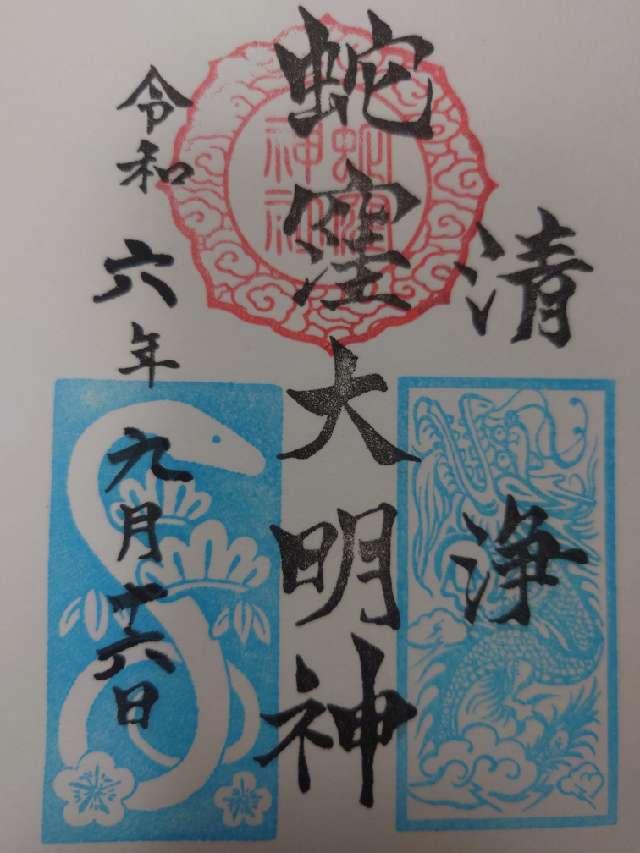 清浄
蛇窪大明神
蛇窪神社
令和六年九月十六日